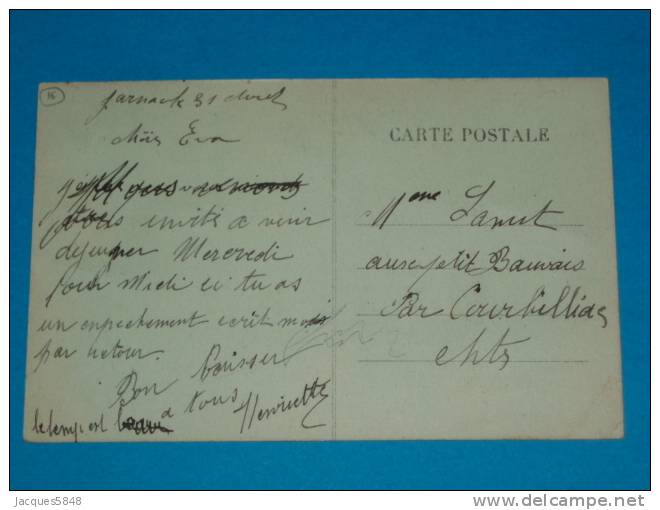 16
Jarnac le 31 Avril
chèis Eva
Je
vous invite a venir
dejeuner Mercredi
pour Midi si tu as
un enpechement ecrit moi
par retour.
Bon baisser
a tous Henriette
le temp est
CARTE POSTALE
Mme Lamit
au petit Bauvais
Par Courbillac
chte
Jacques5848
delcampe.net